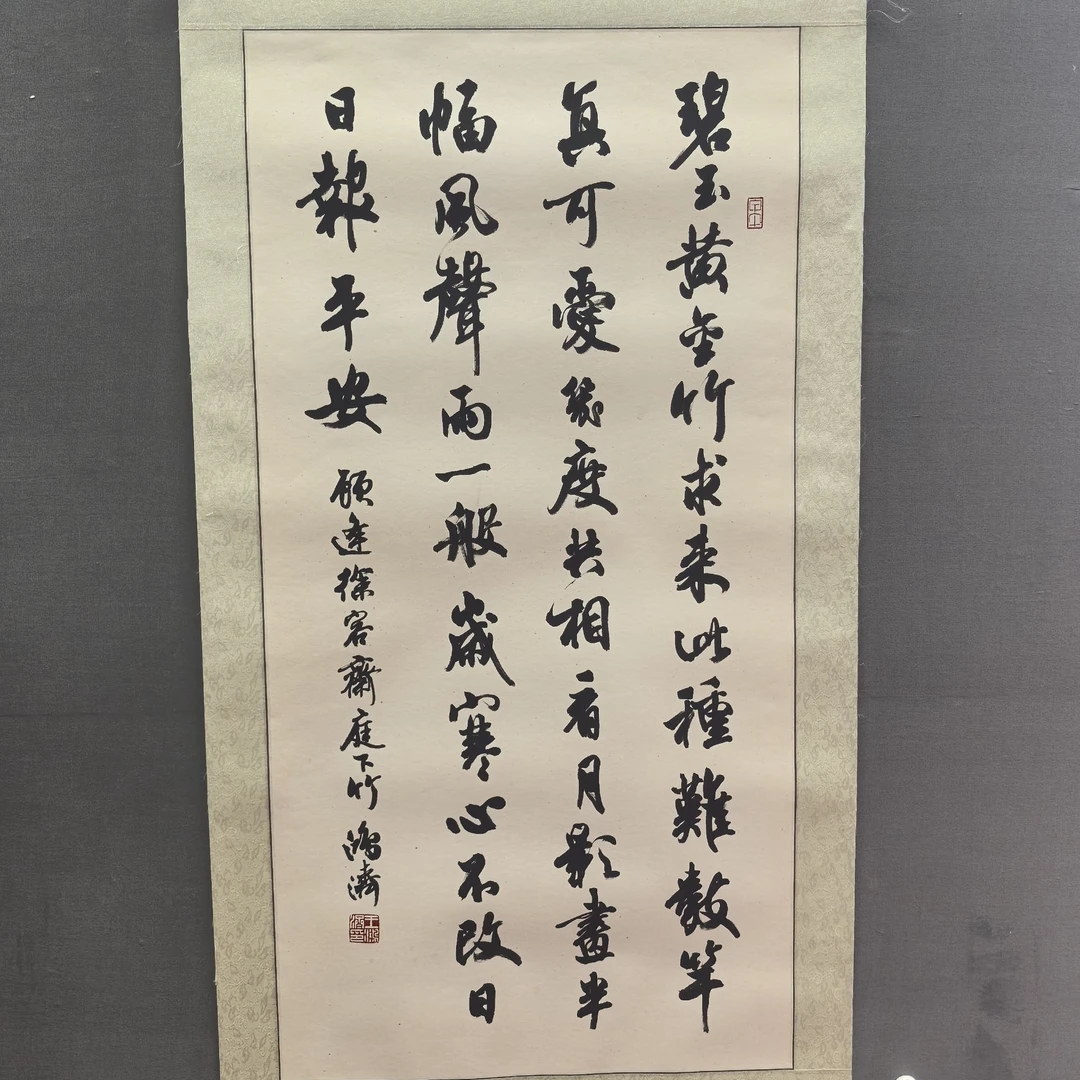 碧玉黄金竹求来此種難數竿
真可愛幾度共相看月影畫半
幅風聲雨一般歲寒心不改日
日報平安 顾逵徐容齋庭下竹 鴻濟